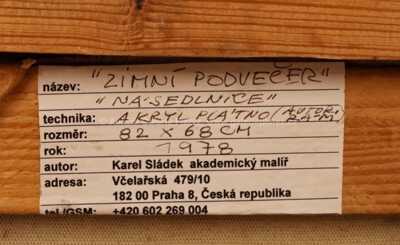 název: "ZIMNÍ PODVEČER"
"NA SEDLNICE"
technika: AKRYL PLÁTNO (AUTOR. RÁM)
rozměr: 82 x 68 CM
rok: 1978
autor: Karel Sládek akademický malíř
adresa: Včelařská 479/10
182 00 Praha 8, Česká republika
tel./GSM: +420 602 269 004